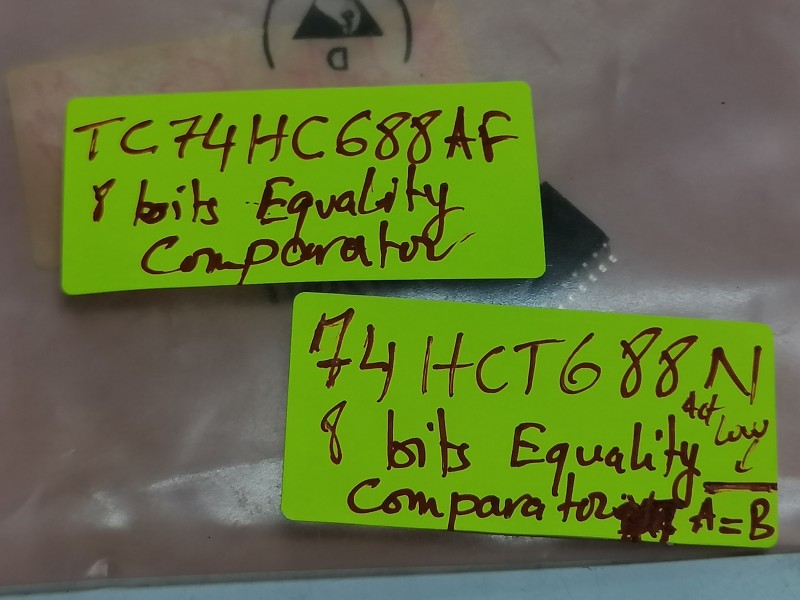 TC74HC688AF
8 bits Equality
Comparator
74HCT688N
8 bits Equality
Act Low
Comparator A=B